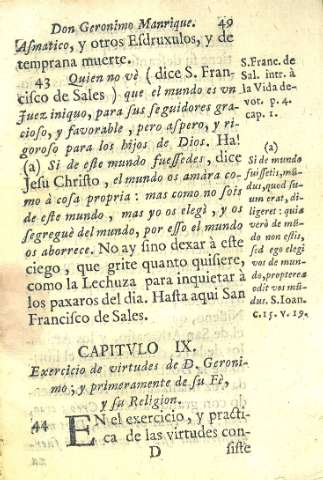 Don Geronimo Manrique. 49
Asmatico, y otros Esdruxulos, y de
temprana muerte.
43 Quien no vè (dice S. Fran-
cisco de Sales) que el mundo es vn
Juez iniquo, para sus seguidores gra-
cioso, y favorable, pero aspero, y ri-
goroso para los hijos de Dios. Ha!
(a) Si de este mundo fuessedes, dice
Jesu Christo, el mundo os amàra co-
mo à cosa propria: mas como no sois
de este mundo, mas yo os elegì, y os
segreguè del mundo, por esso el mundo
os aborrece. No ay sino dexar à este
ciego, que grite quanto quisiere,
como la Lechuza para inquietar à
los paxaros del dia. Hasta aqui San
Francisco de Sales.
S. Franc. de
Sal. intr. à
la Vida de-
vot. p. 4.
cap. 1.
(a)
Si de mundo
fuissetis, mũ-
dus, quod su-
um erat, di-
ligeret: quia
verò de mũ-
do non estis,
sed ego elegi
vos de mun-
do, propterea
odit vos mũ-
dus. S. Ioan.
c. 15. v. 19.
CAPITVLO IX.
Exercicio de virtudes de D. Geroni-
mo; y primeramente de su Fè,
y su Religion.
44 EN el exercicio, y practi-
ca de las virtudes con-
D siste